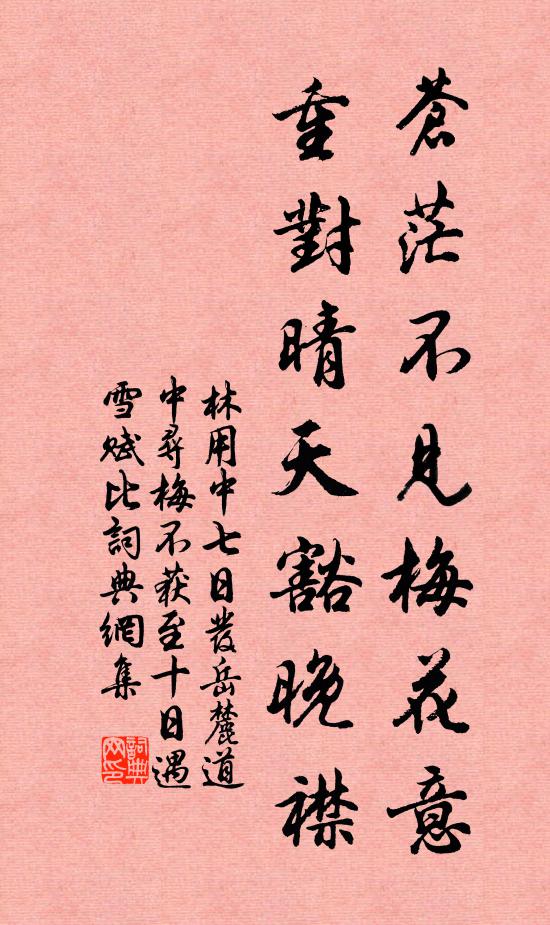 蒼茫不見梅花意
重對晴天豁晚襟
林用中七日發岳麓道
中尋梅不获至十日遇
雪賦比詞典網集
詞典网印